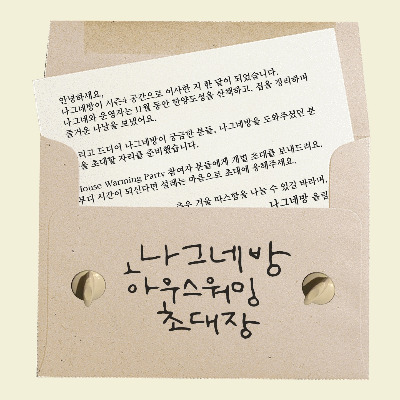 안녕하세요,
나그네방이 시즌4 공간으로 이사한 지 한 달이 되었습니다.
나그네와 운영자는 11월 동안 한양도성을 산책하고, 짐을 정리하며
즐거운 나날을 보냈어요.
리고 드디어 나그네방이 궁금한 분들, 나그네방을 도와주셨던 분
을 초대할 자리를 준비했습니다.
House Warming Party 참여자 분들에게 개별 초대를 보내드려요.
부디 시간이 되신다면 설레는 마음으로 초대에 응해주세요.
추운 겨울 따스함을 나눌 수 있길 바라며,
나그네방 올림
나그네방
하우스워밍
초대장